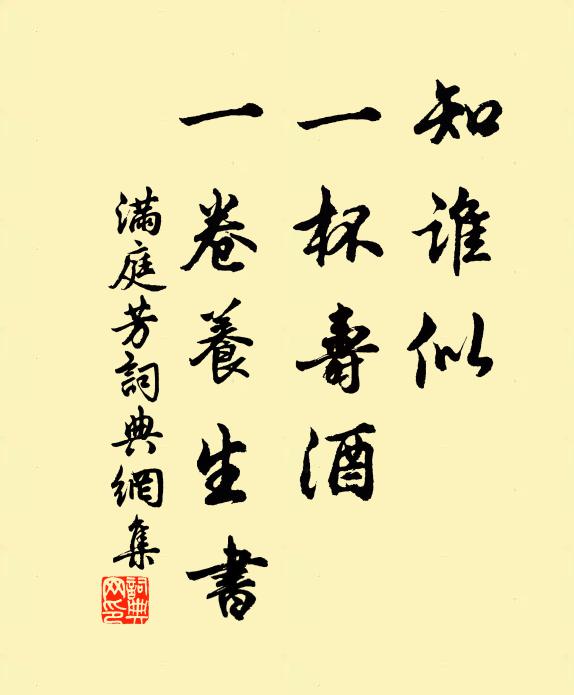 知誰似
一杯壽酒
一卷養生書
滿庭芳詞典網集
詞典網印